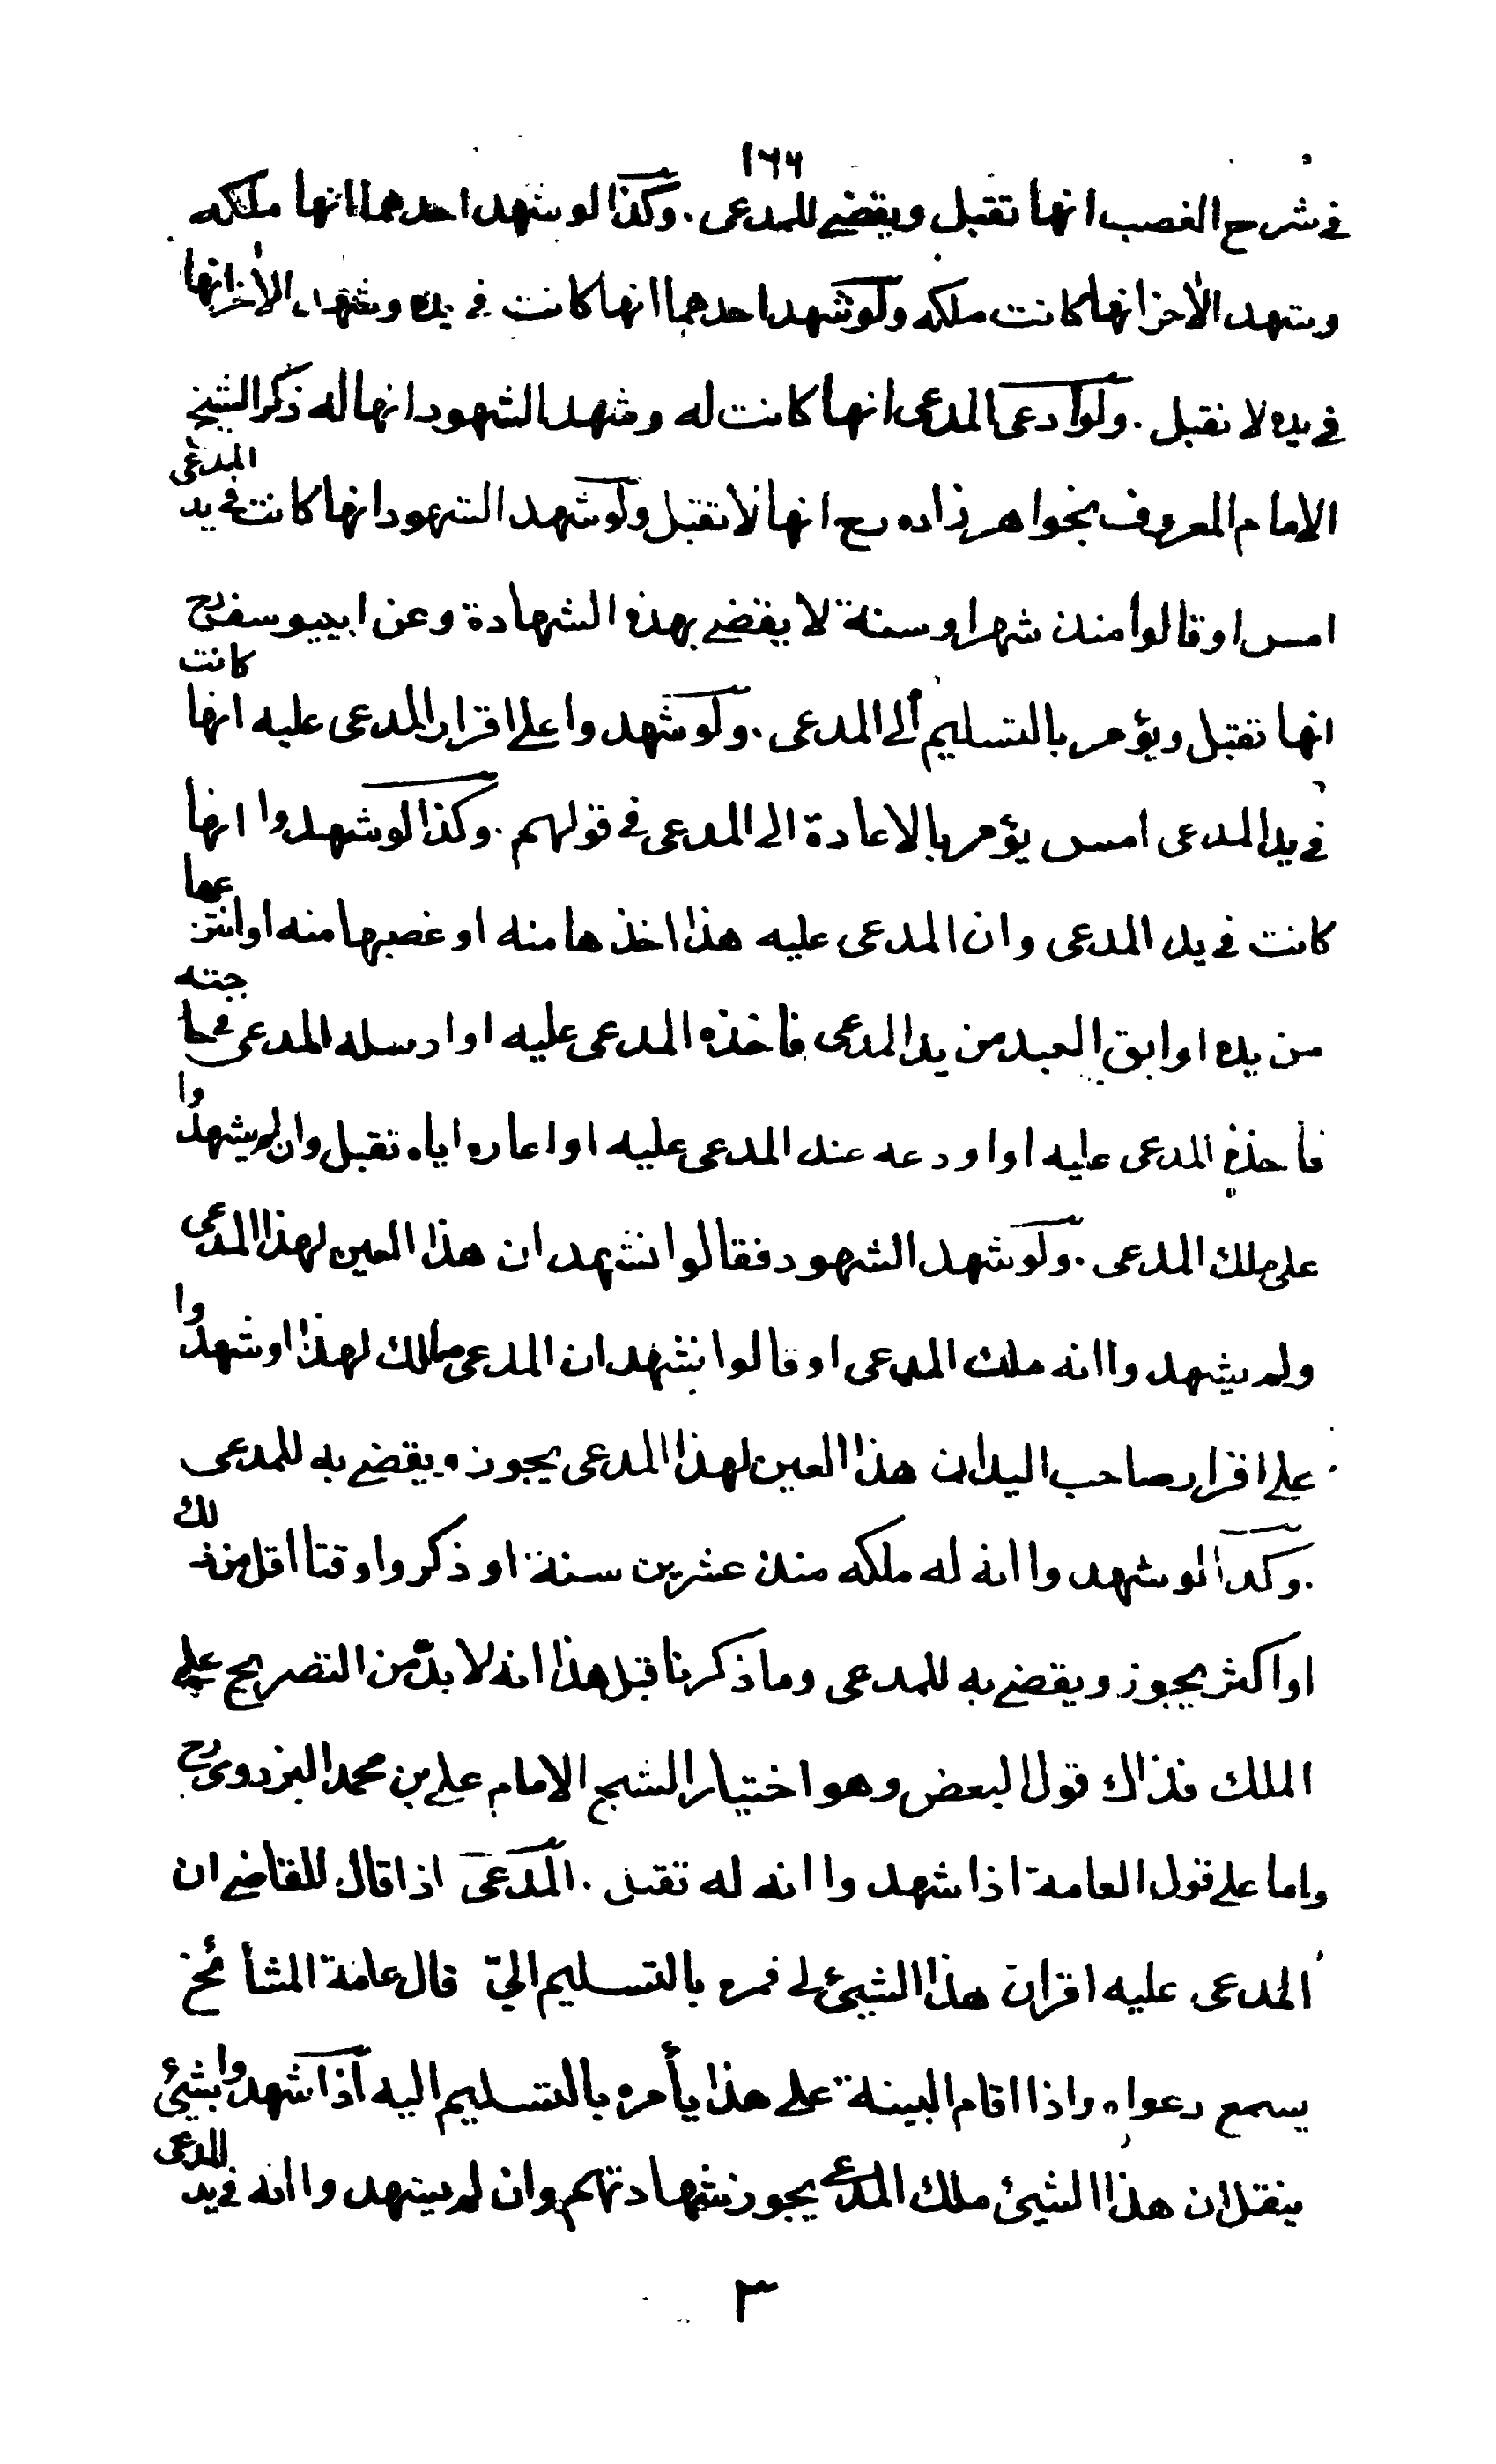 ١٦٧
في شرح الغصب انها تقبل ويقضي للمدعى . وكذا لو شهد احدهما انها ملكه
وشهد الآخر انها كانت ملكه ولو شهد احدهما انها كانت في يده وشهد الآخر انها
في يده لا تقبل . ولو ادعى المدعى انها كانت له وشهد الشهود انها له ذكر الشيخ
الامام المعروف بخواهر زاده رح انها لا تقبل ولو شهد الشهود انها كانت في يد المدعى
امس او قالوا منذ شهر او سنة لا يقضي بهذه الشهادة وعن ابي يوسف رح
انها تقبل ويؤمر بالتسليم الى المدعى . ولو شهدوا على اقرار المدعى عليه انها كانت
في يد المدعى امس يؤمر بالاعادة الى المدعى في قولهم . وكذا لو شهدوا انها
كانت في يد المدعى وان المدعى عليه هذا اخذها منه او غصبها منه او انتزعها
من يده او ابق العبد من يد المدعى فأخذه المدعى عليه او ارسله المدعى في حاجته
فأخذه المدعى عليه او اودعه عند المدعى عليه او اعاره اياه تقبل وان لم يشهدوا
على ملك المدعى . ولو شهد الشهود فقالوا نشهد ان هذا العين لهذا المدعى
ولم يشهدوا انه ملك المدعى او قالوا نشهد ان المدعى مالك لهذا او شهدوا
على اقرار صاحب اليد ان هذا العين لهذا المدعى يجوز ويقضي به للمدعى
. وكذا لو شهدوا انه له ملكه منذ عشرين سنة او ذكروا وقتا اقل من ذلك
او اكثر يجوز ويقضي به للمدعى وما ذكرنا قبل هذا انه لا بدّ من التصريح على
الملك فذاك قول البعض وهو اختيار الشيخ الامام علي بن محمد البزدوى رح
واما على قول العامة اذا شهدوا انه له تقبل . المدعى اذا قال للقاضي ان
المدعى عليه اقر ان هذا الشيئ لي فمره بالتسليم اليّ قال عامة المشائخ
يسمع دعواه واذا اقام البينة على هذا يأمره بالتسليم اليه اذا شهدوا بشيئ
ينقل ان هذا الشيئ ملك المدعى يجوز شهادتهم وان لم يشهدوا انه في يد المدعى
٣